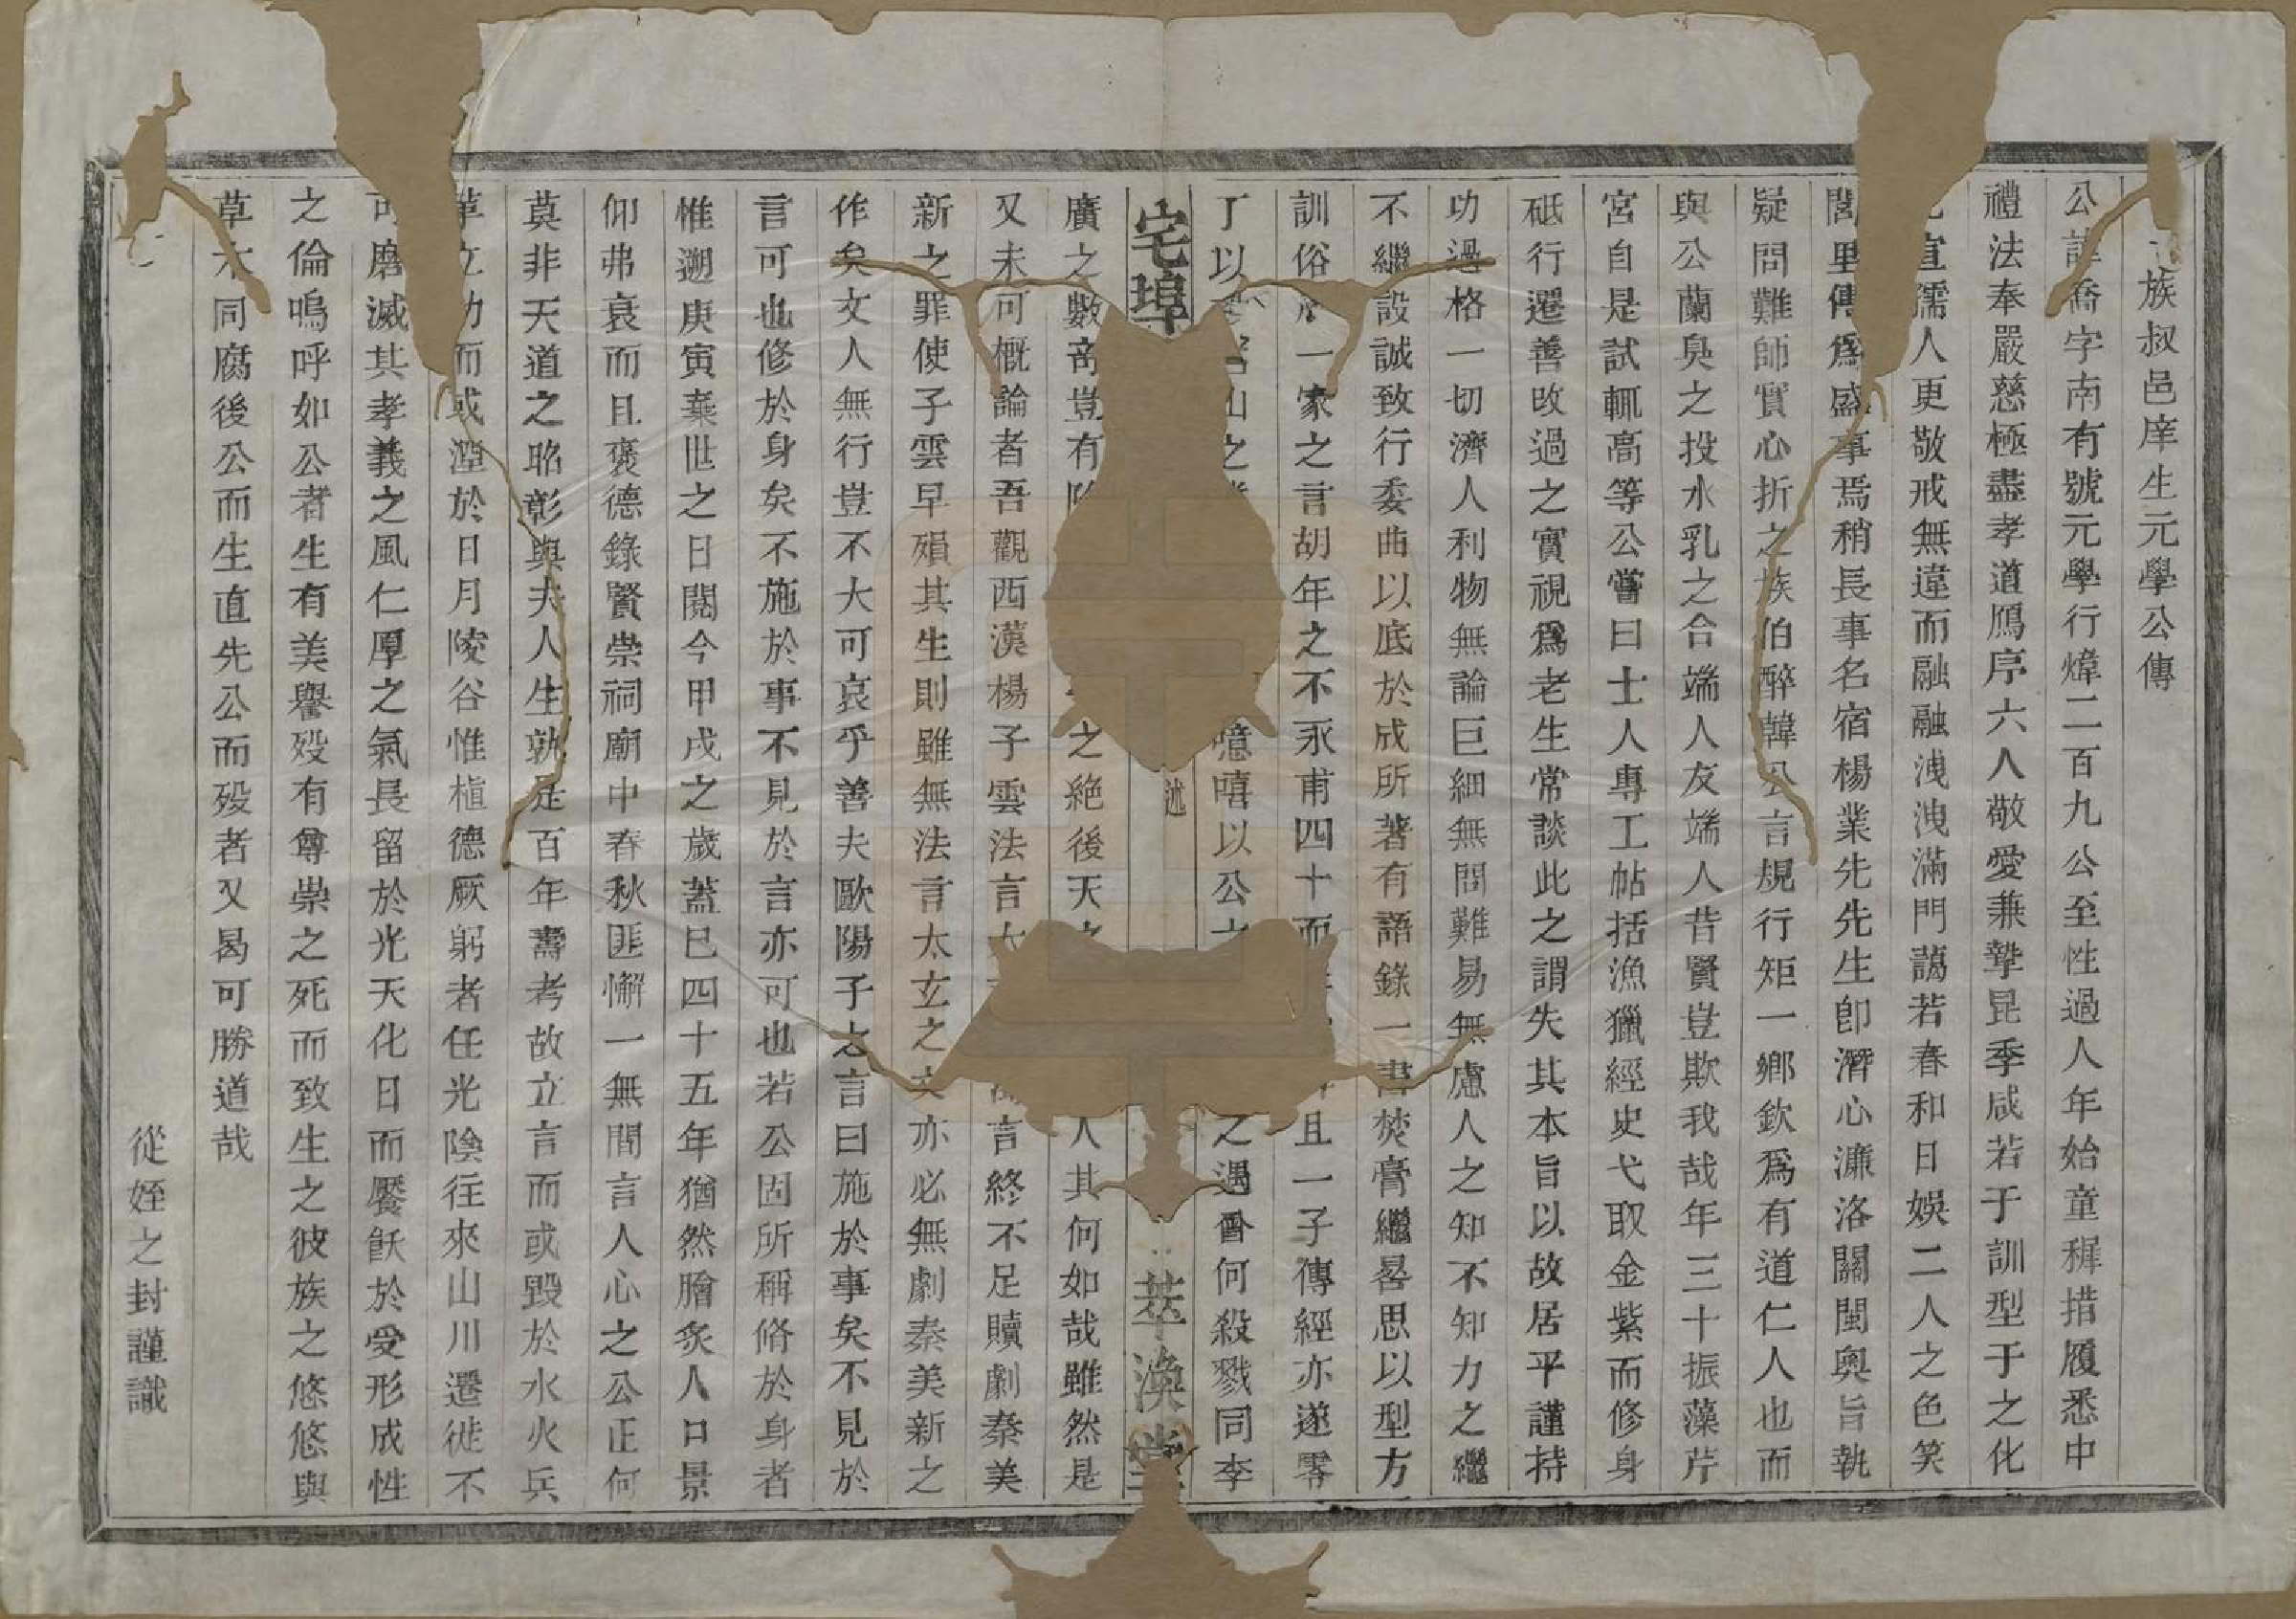 族叔邑庠生元學公傳
公諱喬字南有號元學行煒二百九公至性過人年始童穉措履悉中
禮法奉嚴慈極盡孝道鴈序六人敬愛兼摯昆季咸若于訓型于之化
宜孺人更敬戒無違而融融洩洩滿門藹若春和日娛二人之色笑
閭里傳為盛事焉稍長事名宿楊業先先生卽潛心濂洛關閩奧旨執
疑問難師實心折之族伯醉韓公言規行矩一鄉欽為有道仁人也而
與公蘭臭之投水乳之合端人友端人昔賢豈欺我哉年三十振藻芹
宮自是試輒高等公嘗曰士人專工帖括漁獵經史弋取金紫而修身
砥行遷善改過之實視為老生常談此之謂失其本旨以故居平謹持
功過格一切濟人利物無論巨細無問難易無慮人之知不知力之繼
不繼設誠致行委曲以底於成所著有語錄一書焚膏繼晷思以型方
訓俗一家之言胡年之不永甫四十而且一子傳經亦遂零
丁以山之噫嘻以公之遇會何殺戮同李
宅埠
述
萃渙堂
廣之數奇豈有之絕後天人其何如哉雖然是
又未可概論者吾觀西漢楊子雲法言萬言終不足贖劇秦美
新之罪使子雲早殞其生則雖無法言太玄之文亦必無劇秦美新之
作矣文人無行豈不大可哀乎善夫歐陽子之言曰施於事矣不見於
言可也修於身矣不施於事不見於言亦可也若公固所稱脩於身者
惟遡庚寅棄世之日閱今甲戌之歲蓋已四十五年猶然膾炙人口景
仰弗衰而且褒德錄賢崇祠廟中春秋匪懈一無間言人心之公正何
莫非天道之昭彰與夫人生孰是百年壽考故立言而或毀於水火兵
革立功而或湮於日月陵谷惟植德厥躬者任光陰往來山川遷徙不
可磨滅其孝義之風仁厚之氣長留於光天化日而饜飫於受形成性
之倫嗚呼如公者生有美譽歿有尊崇之死而致生之彼族之悠悠與
草木同腐後公而生直先公而歿者又曷可勝道哉
從姪之封謹識